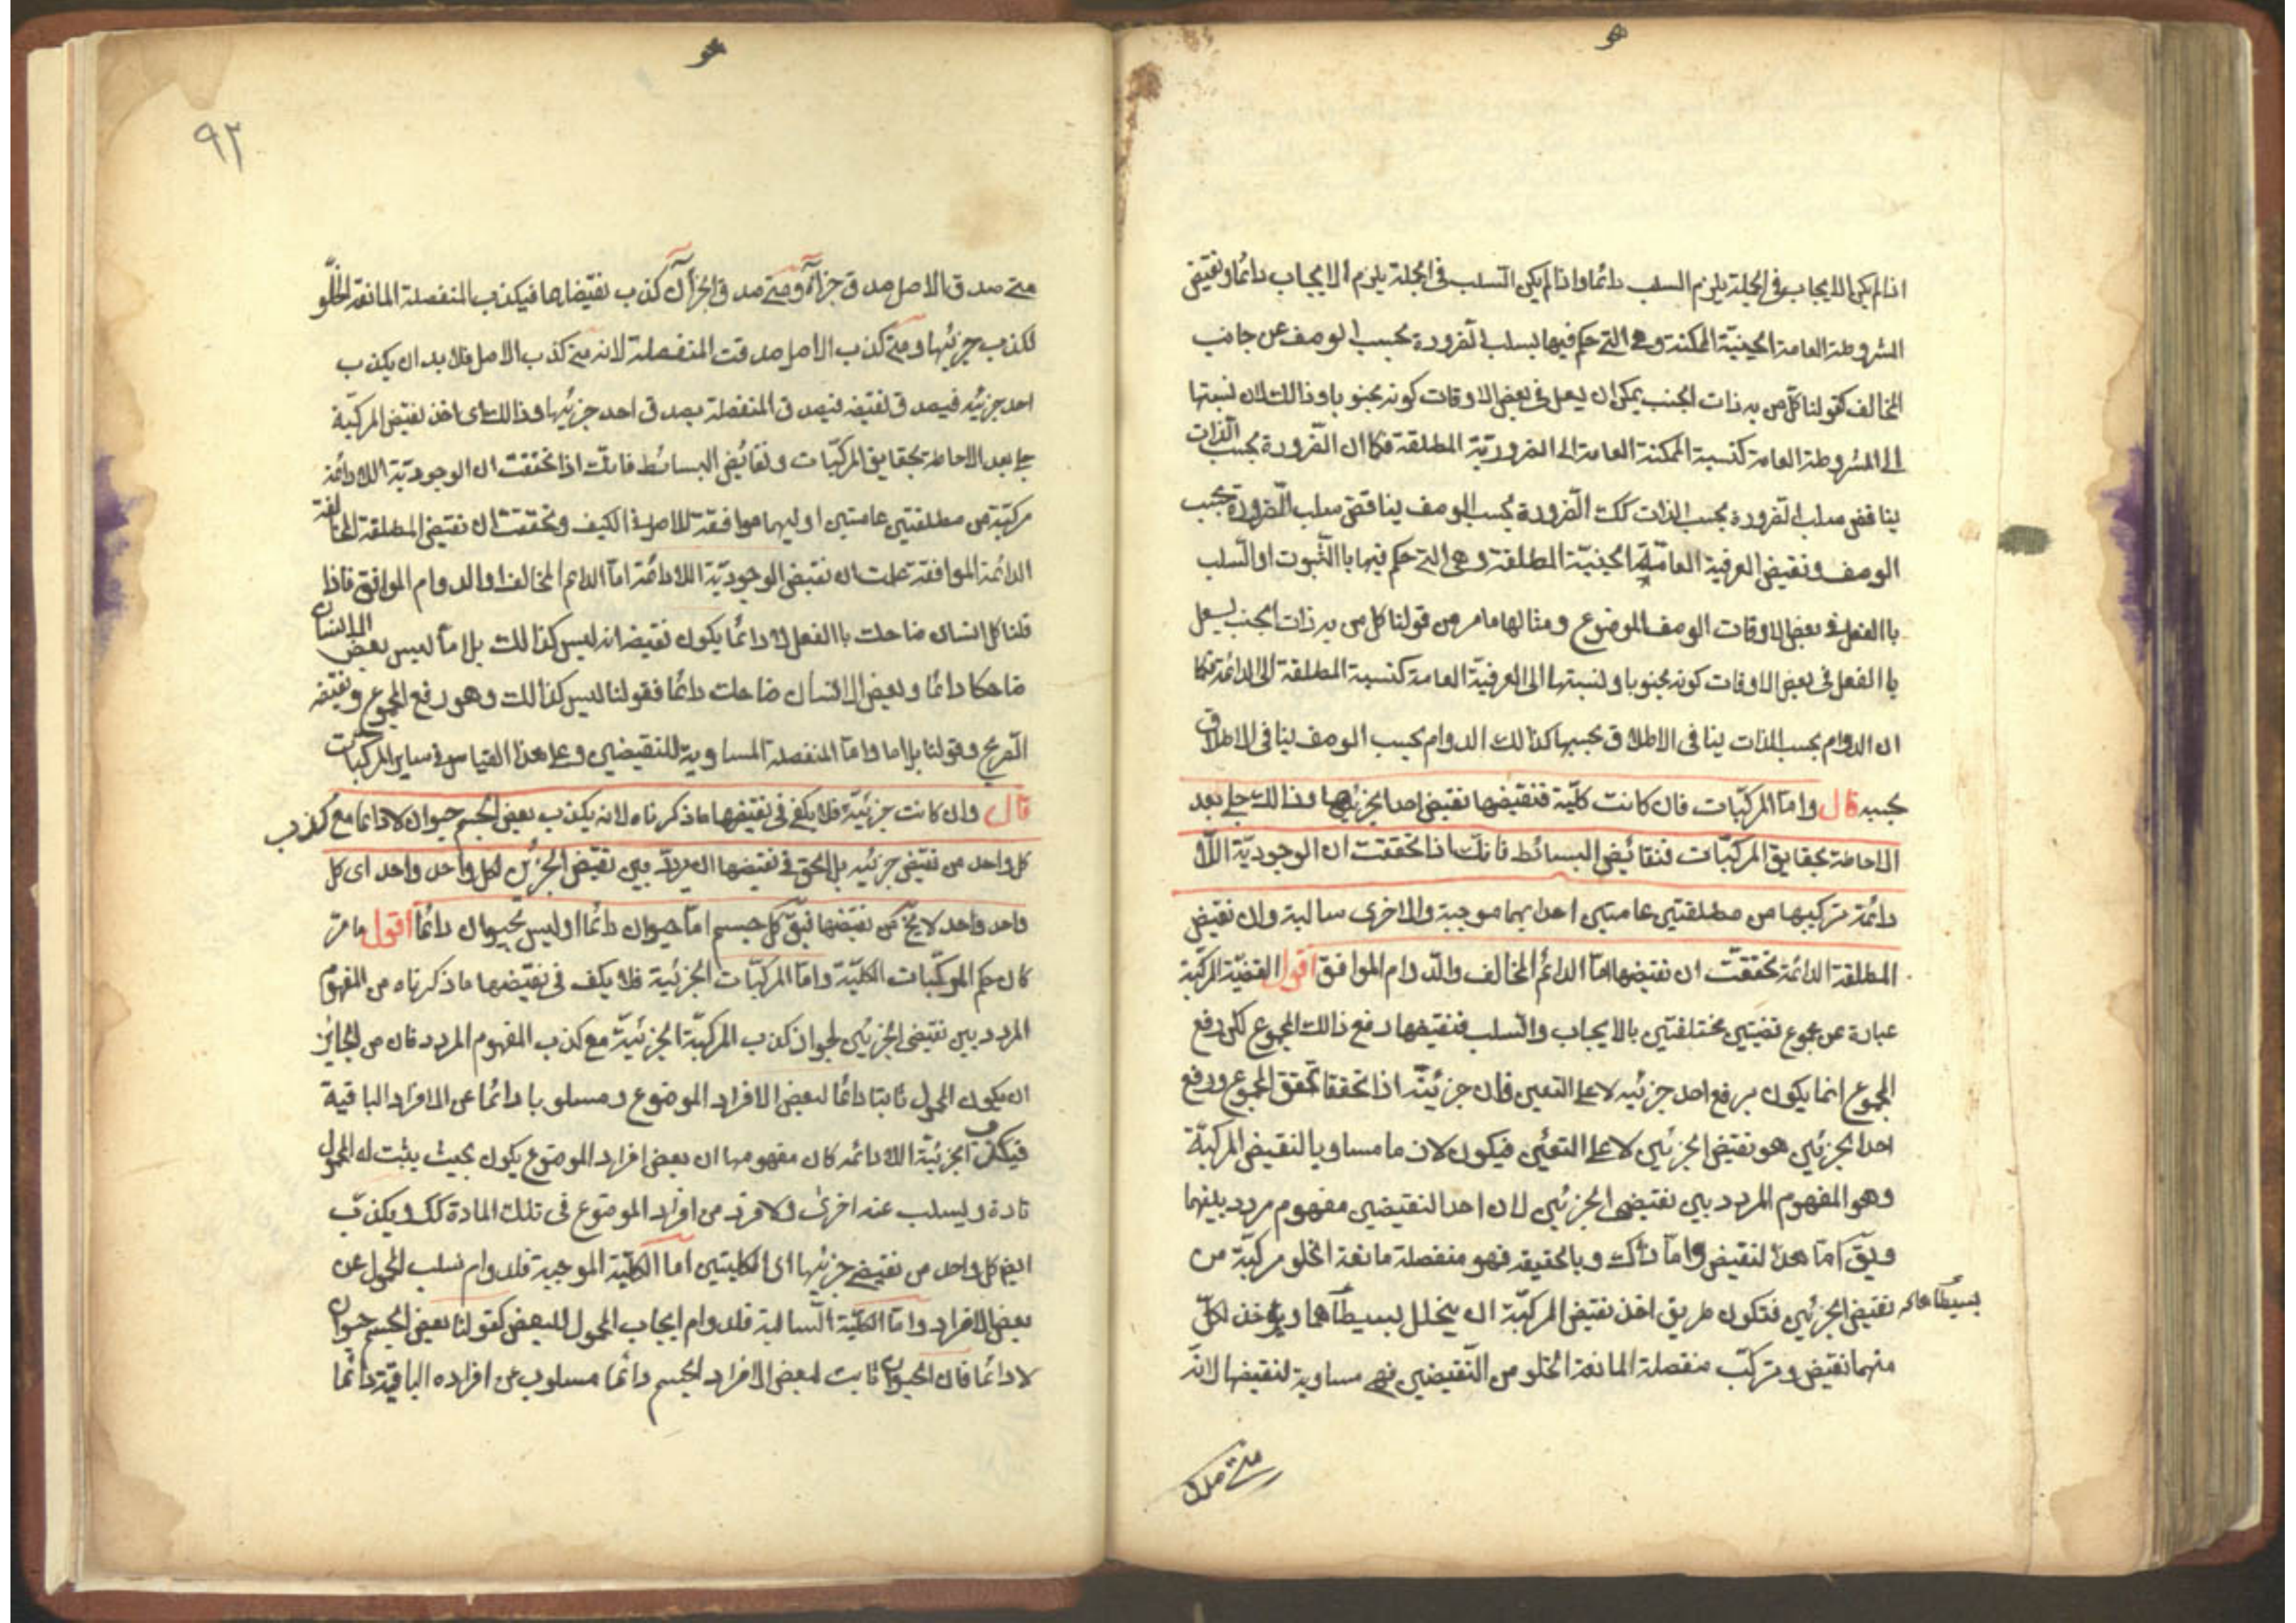 هو
اذا لم يكن الايجاب فى الجملة يلزم السلب دائما واذا لم يكن السلب فى الجملة يلزم الايجاب دائما ونقيض
المشروطة العامة الحينية الممكنة وهى التى حكم فيها بسلب الضرورة بحسب الوصف عن جانب
المخالف كقولنا كل من به ذات الجنب يمكن ان يسعل فى بعض الاوقات كونه مجنوبا وذالك لان نسبتها
الى المشروطة العامة كنسبة الممكنة العامة الى الضرورية المطلقة فكما ان الضرورة بحسب الذات
يناقض سلب الضرورة بحسب الذات كك الضرورة بحسب الوصف يناقض سلب الضرورة بحسب
الوصف ونقيض العرفية العامة الحينية المطلقة وهى التى حكم فيها باالثبوت او السلب
باالفعل فى بعض الاوقات الوصف الموضوع ومثالها ما مر من قولنا كل من به ذات الجنب يسعل
باالفعل فى بعض الاوقات كونه مجنوبا ونسبتها الى العرفية العامة كنسبة المطلقة الى الدائمة فكما
ان الدوام بحسب الذات ينافى الاطلاق بحسبها كذالك الدوام بحسب الوصف ينافى الاطلاق
بحسبه قال واما المركبات فان كانت كلية فنقيضها نقيض احد الجزئيها وذالك جلى بعد
الاحاطة بحقايق المركبات فنقائض البسائط فانك اذا تحققت ان الوجودية اللا
دائمة تركيبها من مطلقتين عامتين احدايهما موجبة والاخرى سالبة وان نقيض
المطلقة الدائمة تحققت ان نقيضها اما الدائم المخالف والدوام الموافق اقول القضية المركبة
عبارة عن مجموع قضيتين مختلفتين بالايجاب والسلب فنقيضها رفع ذالك المجموع لكن رفع
المجموع انما يكون برفع احد جزئيه لا على التعين فان جزئيه اذا تحققا تحقق المجموع ورفع
احد الجزئين هو نقيض الجزئين لا على التعين فيكون لازما مساويا لنقيض المركبة
وهو المفهوم المردد بين نقيضى الجزئين لان احد النقيضين مفهوم مردد بينهما
ويق اما هذا لنقيض واما ذاك وبالحقيقه فهو منفصلة مانعة الخلو مركبة من
نقيض الجزئين فتكون طريق اخذ نقيض المركبة ان يتحلل بسيطاهما ويؤخذ لكل
منهما نقيض وتركب منفصلة المانعة الخلو من النقيضين فهى مساوية لنقيضها لانه
متى صدق
هو
٩٢
متى صدق الاصل صدق جزاه ومتى صدق الجزأن كذب نقيضاهما فيكذب المنفصلة المانعة الخلو
لكذب جزئيها ومتى كذب الاصل صدقت المنفصلة لانه متى كذب الاصل فلابد ان يكذب
احد جزئيه فيصدق نقيضه فيصدق المنفصلة بصدق احد جزئيها وذالك اى اخذ نقيض المركبة
جلى بعد الاحاطة بحقايق المركبات ونقائض البسائط فانك اذا تحققت ان الوجودية اللادائمة
مركبة من مطلقتين عامتين اوليهما موافقة للاصل فى الكيف وتحققت ان نقيض المطلقة المخالفة
الدائمة الموافقة علمت ان نقيض الوجودية اللادائمة اما الدائم المخالف او الدوام الموافق فاذا
قلنا كل انسان ضاحك باالفعل لا دائما يكون نقيضه انه ليس كذالك بل اما ليس بعض الانسان
ضاحكا دائما وبعض الانسان ضاحك دائما فقولنا ليس كذالك وهو رفع المجموع ونقيضه
الصريح وقولنا بل اما واما المنفصلة المساوية للنقيضين وعلى هذا القياس فى ساير المركبات
قال وان كانت جزئية فلا يكفى فى نقيضها ما ذكرناه لانه يكذب بعض الجسم حيوان لا دائما مع كذب
كل واحد من نقيض جزئيه بل الحق فى نقيضها ان يردد بين نقيض الجزئين لكل واحد واحد اى كل
واحد واحد لا يخ من نقيضها فيق كل جسم اما حيوان دائما او ليس بحيوان دائما اقول ما مر
كان حكم المركبات الكلية واما المركبات الجزئية فلا يكف فى نقيضها ما ذكرناه من المفهوم
المردد بين نقيضى الجزئين لجواز كذب المركبة الجزئية مع كذب المفهوم المردد فان من الجايز
ان يكون المحمول ثابتا دائما لبعض الافراد الموضوع ومسلوبا دائما عن الافراد الباقية
فيكذب الجزئية اللادائمه كان مفهومها ان بعض افراد الموضوع يكون بحيث يثبت له المحمول
تارة ويسلب عنه اخرى ولا فرد من افراد الموضوع فى تلك المادة كك ويكذب
ايض كل واحد من نقيضى جزئيها اى الكليتين اما الكلية الموجبة فلدوام سلب المحمول عن
بعض الافراد واما الكلية السالبة فلدوام ايجاب المحمول للبعض كقولنا بعض الجسم حيوان
لا دائما فان الحيوان ثابت لبعض الافراد الجسم دائما مسلوب عن افراده الباقية دائما